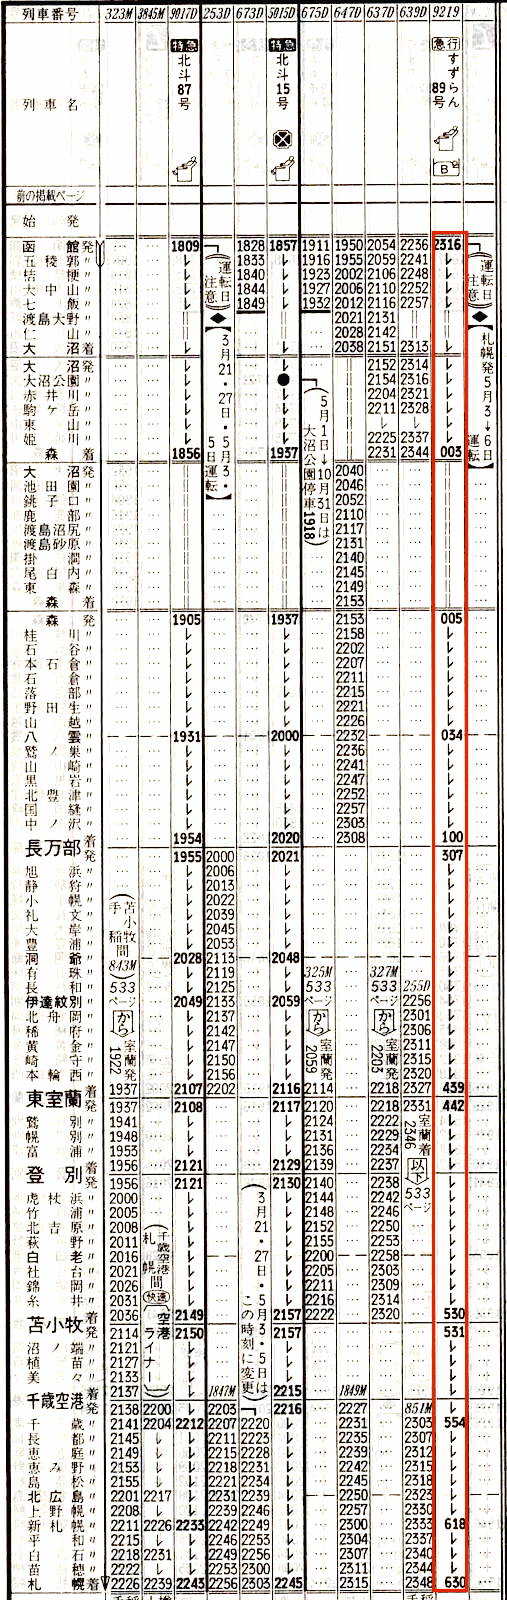 列車番号 323M 3845M 9017D 253D 673D 5015D 675D 647D 637D 639D 9219
特急 特急 急行
列車名 北斗87号 北斗15号 すずらん89号
B
前の掲載ページ
始発
函館発 1809 1828 1857 1911 1950 2054 2236 2316
五稜郭〃 1833 1916 1955 2059 2241
桔梗〃 1840 1923 2002 2106 2248
大中山〃 1844 1927 2006 2110 2252
七飯〃 1849 1932 2012 2116 2257
渡島大野〃 2021 2131
仁山〃 2028 2142
大沼着 2038 2151 2313
大沼発 2152 2314
大沼公園〃 ● 2154 2316
赤井川〃 2204 2321
駒ケ岳〃 2211 2328
東山〃
姫川〃 2225 2337
森着 1856 1937 2231 2344 003
運転日注意 ◆ 3月21・27日・5月3・5日運転
5月1日→10月31日は大沼公園停車1918
運転日注意 ◆ 札幌発5月3→6日運転
大沼発 2040
池田園〃 2046
銚子口〃 2052
鹿部〃 2110
渡島沼尻〃 2117
渡島砂原〃 2131
掛澗〃 2140
尾白内〃 2145
東森〃 2149
森着 2153
森発 1905 1937 2153 005
桂川〃 2158
石谷〃 2202
本石倉〃 2207
石倉〃 2211
落部〃 2215
野田生〃 2221
山越〃 2226
八雲〃 1931 2000 2232 034
鷲ノ巣〃 2236
山崎〃 2241
黒岩〃 2247
北豊津〃 2252
国縫〃 2257
中ノ沢〃 2303
長万部着 1954 2020 2308 100
発 1955 2000 2021 307
旭浜〃 2006
静狩〃 2013
小幌〃 2022
礼文〃 2039
大岸〃 2045
豊浦〃 2053
洞爺〃 2028 2113 2048
有珠〃 2119
長和〃 2125
伊達紋別〃 2049 2133 2059 2256
北舟岡〃 2137 2301
稀府〃 2142 2306
黄金〃 2147 2311
崎守〃 2150 2315
本輪西〃 2156 2320
苫小牧手稲間843M
533ページから 室蘭発1922
325M 533ページから 室蘭発2059
327M 533ページから 室蘭発2203
255D
東室蘭着 1937 2107 2202 2116 2114 2218 2327 439
発 1937 2108 2117 2120 2218 2331 442
鷲別〃 1941 2124 2222
幌別〃 1948 2131 2229
富浦〃 1953 2136 2234
登別着 1956 2121 2129 2139 2237
発 1956 2121 2130 2140 2238
室蘭着2346 以下533ページ
虎杖浜〃 2000 2144 2242
竹浦〃 2005 2148 2246
北吉原〃 2008 2152 2250
萩野〃 2011 2155 2253
白老〃 2016 2200 2258
社台〃 2021 2205 2303
錦岡〃 2026 2211 2309
糸井〃 2031 2216 2314
苫小牧着 2036 2149 2157 2222 2320 530
発 2114 2150 2157 531
千歳空港札幌間 快速 空港ライナー
3月21・27日・5月3・5日はこの時刻に変更
沼ノ端〃 2121
植苗〃 2127
美々〃 2133
千歳空港着 2137 1847M 2215 1849M
発 2138 2200 2203 2216 2227 851M
千歳〃 2141 2204 2212 2207 2220 2231 2303 554
長都〃 2145 2211 2223 2235 2307
恵庭〃 2149 2215 2228 2239 2312
恵み野〃 2153 2218 2231 2242 2315
島松〃 2155 2221 2234 2245 2318
北広島〃 2201 2217 2231 2239 2250 2323
上野幌〃 2208 2239 2246 2257 2330
新札幌〃 2211 2226 2233 2242 2249 2300 2333 618
平和〃 2215 2246 2253 2304 2337
白石〃 2218 2231 2249 2256 2307 2340
苗穂〃 2222 2253 2300 2311 2344
札幌着 2226 2239 2243 2256 2303 2245 2315 2348 630